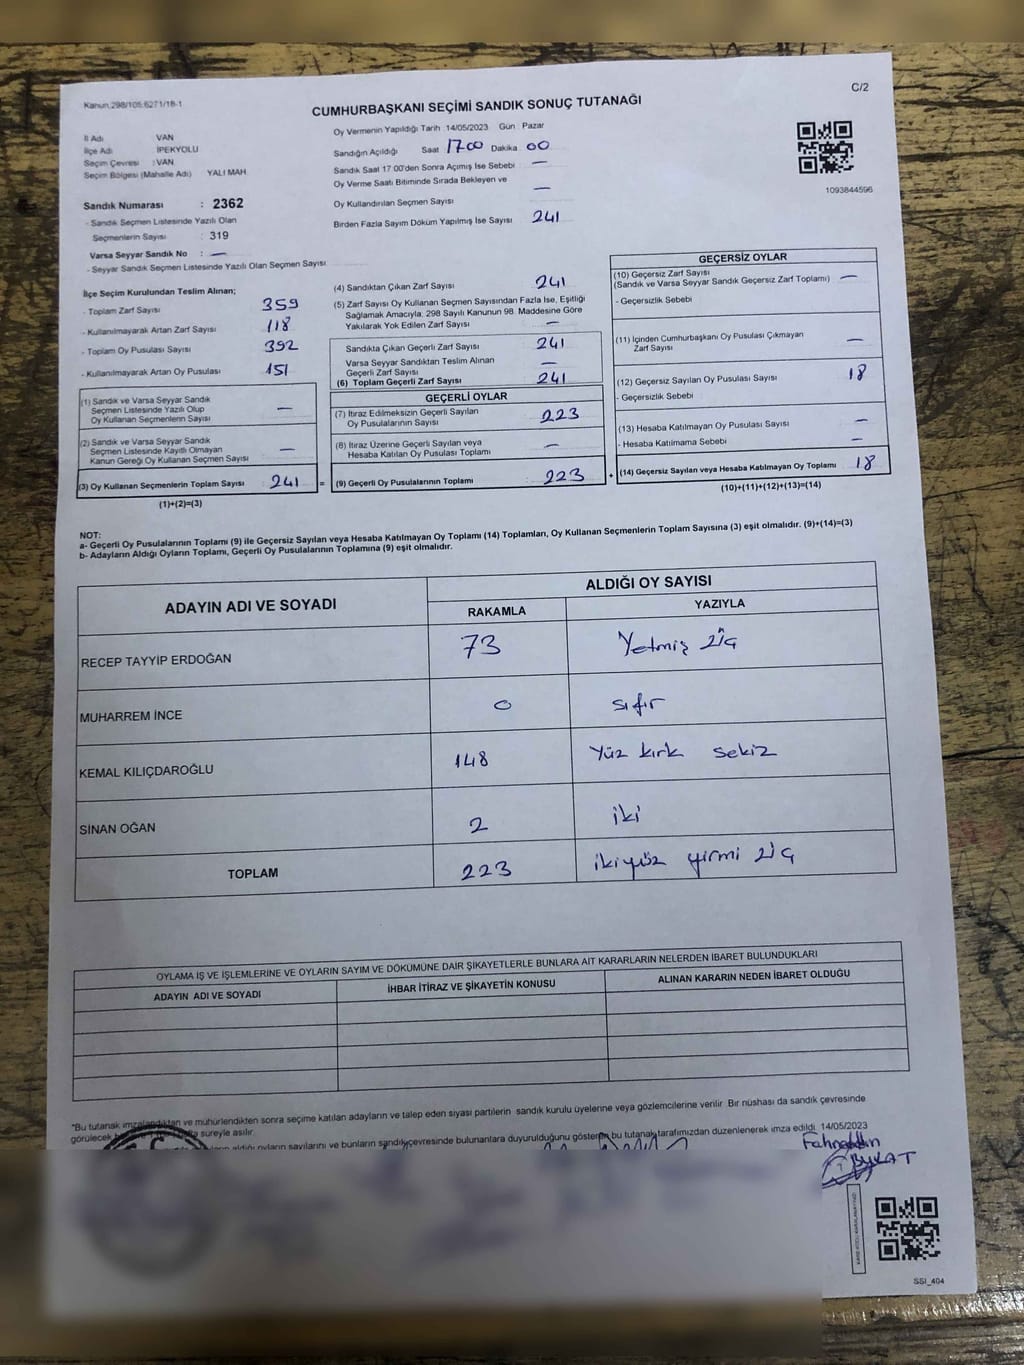 C/2
Kanun 298/105:6271/18-1
CUMHURBAŞKANI SEÇİMİ SANDIK SONUÇ TUTANAĞI
İl Adı VAN
İlçe Adı İPEKYOLU
Seçim Çevresi : VAN
Seçim Bölgesi (Mahalle Adı) YALI MAH.
Sandık Numarası : 2362
- Sandık Seçmen Listesinde Yazılı Olan
Seçmenlerin Sayısı : 319
Varsa Seyyar Sandık No : —
- Seyyar Sandık Seçmen Listesinde Yazılı Olan Seçmen Sayısı
Oy Vermenin Yapıldığı Tarih :14/05/2023 Gün : Pazar
Sandığın Açıldığı Saat 17.00 Dakika 00
Sandık Saat 17.00'den Sonra Açımış İse Sebebi : —
Oy Verme Saati Bitiminde Sırada Bekleyen ve
Oy Kullandırılan Seçmen Sayısı —
Birden Fazla Sayım Döküm Yapılmış İse Sayısı : 241
1093844596
İlçe Seçim Kurulundan Teslim Alınan;
- Toplam Zarf Sayısı 359
- Kullanılmayarak Artan Zarf Sayısı 118
- Toplam Oy Pusulası Sayısı 392
- Kullanılmayarak Artan Oy Pusulası 151
(1) Sandık ve Varsa Seyyar Sandık
Seçmen Listesinde Yazılı Olup
Oy Kullanan Seçmenlerin Sayısı —
(2) Sandık ve Varsa Seyyar Sandık
Seçmen Listesinde Kayıtlı Olmayan
Kanun Gereği Oy Kullanan Seçmen Sayısı —
(3) Oy Kullanan Seçmenlerin Toplam Sayısı 241 =
(1)+(2)=(3)
(4) Sandıktan Çıkan Zarf Sayısı 241
(5) Zarf Sayısı Oy Kullanan Seçmen Sayısından Fazla İse, Eşitliği
Sağlamak Amacıyla, 298 Sayılı Kanunun 98. Maddesine Göre
Yakılarak Yok Edilen Zarf Sayısı —
Sandıkta Çıkan Geçerli Zarf Sayısı 241
Varsa Seyyar Sandıktan Teslim Alınan
Geçerli Zarf Sayısı —
(6) Toplam Geçerli Zarf Sayısı 241
GEÇERLİ OYLAR
(7) İtiraz Edilmeksizin Geçerli Sayılan
Oy Pusulalarının Sayısı 223
(8) İtiraz Üzerine Geçerli Sayılan veya
Hesaba Katılan Oy Pusulası Toplamı —
(9) Geçerli Oy Pusulalarının Toplamı 223 +
GEÇERSİZ OYLAR
(10) Geçersiz Zarf Sayısı
(Sandık ve Varsa Seyyar Sandık Geçersiz Zarf Toplamı) —
- Geçersizlik Sebebi
(11) İçinden Cumhurbaşkanı Oy Pusulası Çıkmayan
Zarf Sayısı —
(12) Geçersiz Sayılan Oy Pusulası Sayısı 18
- Geçersizlik Sebebi
(13) Hesaba Katılmayan Oy Pusulası Sayısı —
- Hesaba Katılmama Sebebi —
(14) Geçersiz Sayılan veya Hesaba Katılmayan Oy Toplamı 18
(10)+(11)+(12)+(13)=(14)
NOT:
a- Geçerli Oy Pusulalarının Toplamı (9) ile Geçersiz Sayılan veya Hesaba Katılmayan Oy Toplamı (14) Toplamları, Oy Kullanan Seçmenlerin Toplam Sayısına (3) eşit olmalıdır. (9)+(14)=(3)
b- Adayların Aldığı Oyların Toplamı, Geçerli Oy Pusulalarının Toplamına (9) eşit olmalıdır.
ADAYIN ADI VE SOYADI ALDIĞI OY SAYISI
RAKAMLA YAZIYLA
RECEP TAYYİP ERDOĞAN 73 Yetmiş üç
MUHARREM İNCE 0 sıfır
KEMAL KILIÇDAROĞLU 148 Yüz kırk sekiz
SİNAN OĞAN 2 iki
TOPLAM 223 ikiyüz yirmi üç
OYLAMA İŞ VE İŞLEMLERİNE VE OYLARIN SAYIM VE DÖKÜMÜNE DAİR ŞİKAYETLERLE BUNLARA AİT KARARLARIN NELERDEN İBARET BULUNDUKLARI
ADAYIN ADI VE SOYADI İHBAR İTİRAZ VE ŞİKAYETİN KONUSU ALINAN KARARIN NEDEN İBARET OLDUĞU
*Bu tutanak imzalandıktan ve mühürlendikten sonra seçime katılan adayların ve talep eden siyasi partilerin sandık kurulu üyelerine veya gözlemcilerine verilir. Bir nüshası da sandık çevresinde
görülecek süreyle asılır.
aldığı oyların sayılarını ve bunların sandık çevresinde bulunanlara duyurulduğunu gösteren bu tutanak tarafımızdan düzenlenerek imza edildi. 14/05/2023
Fahreddin
SSI_404